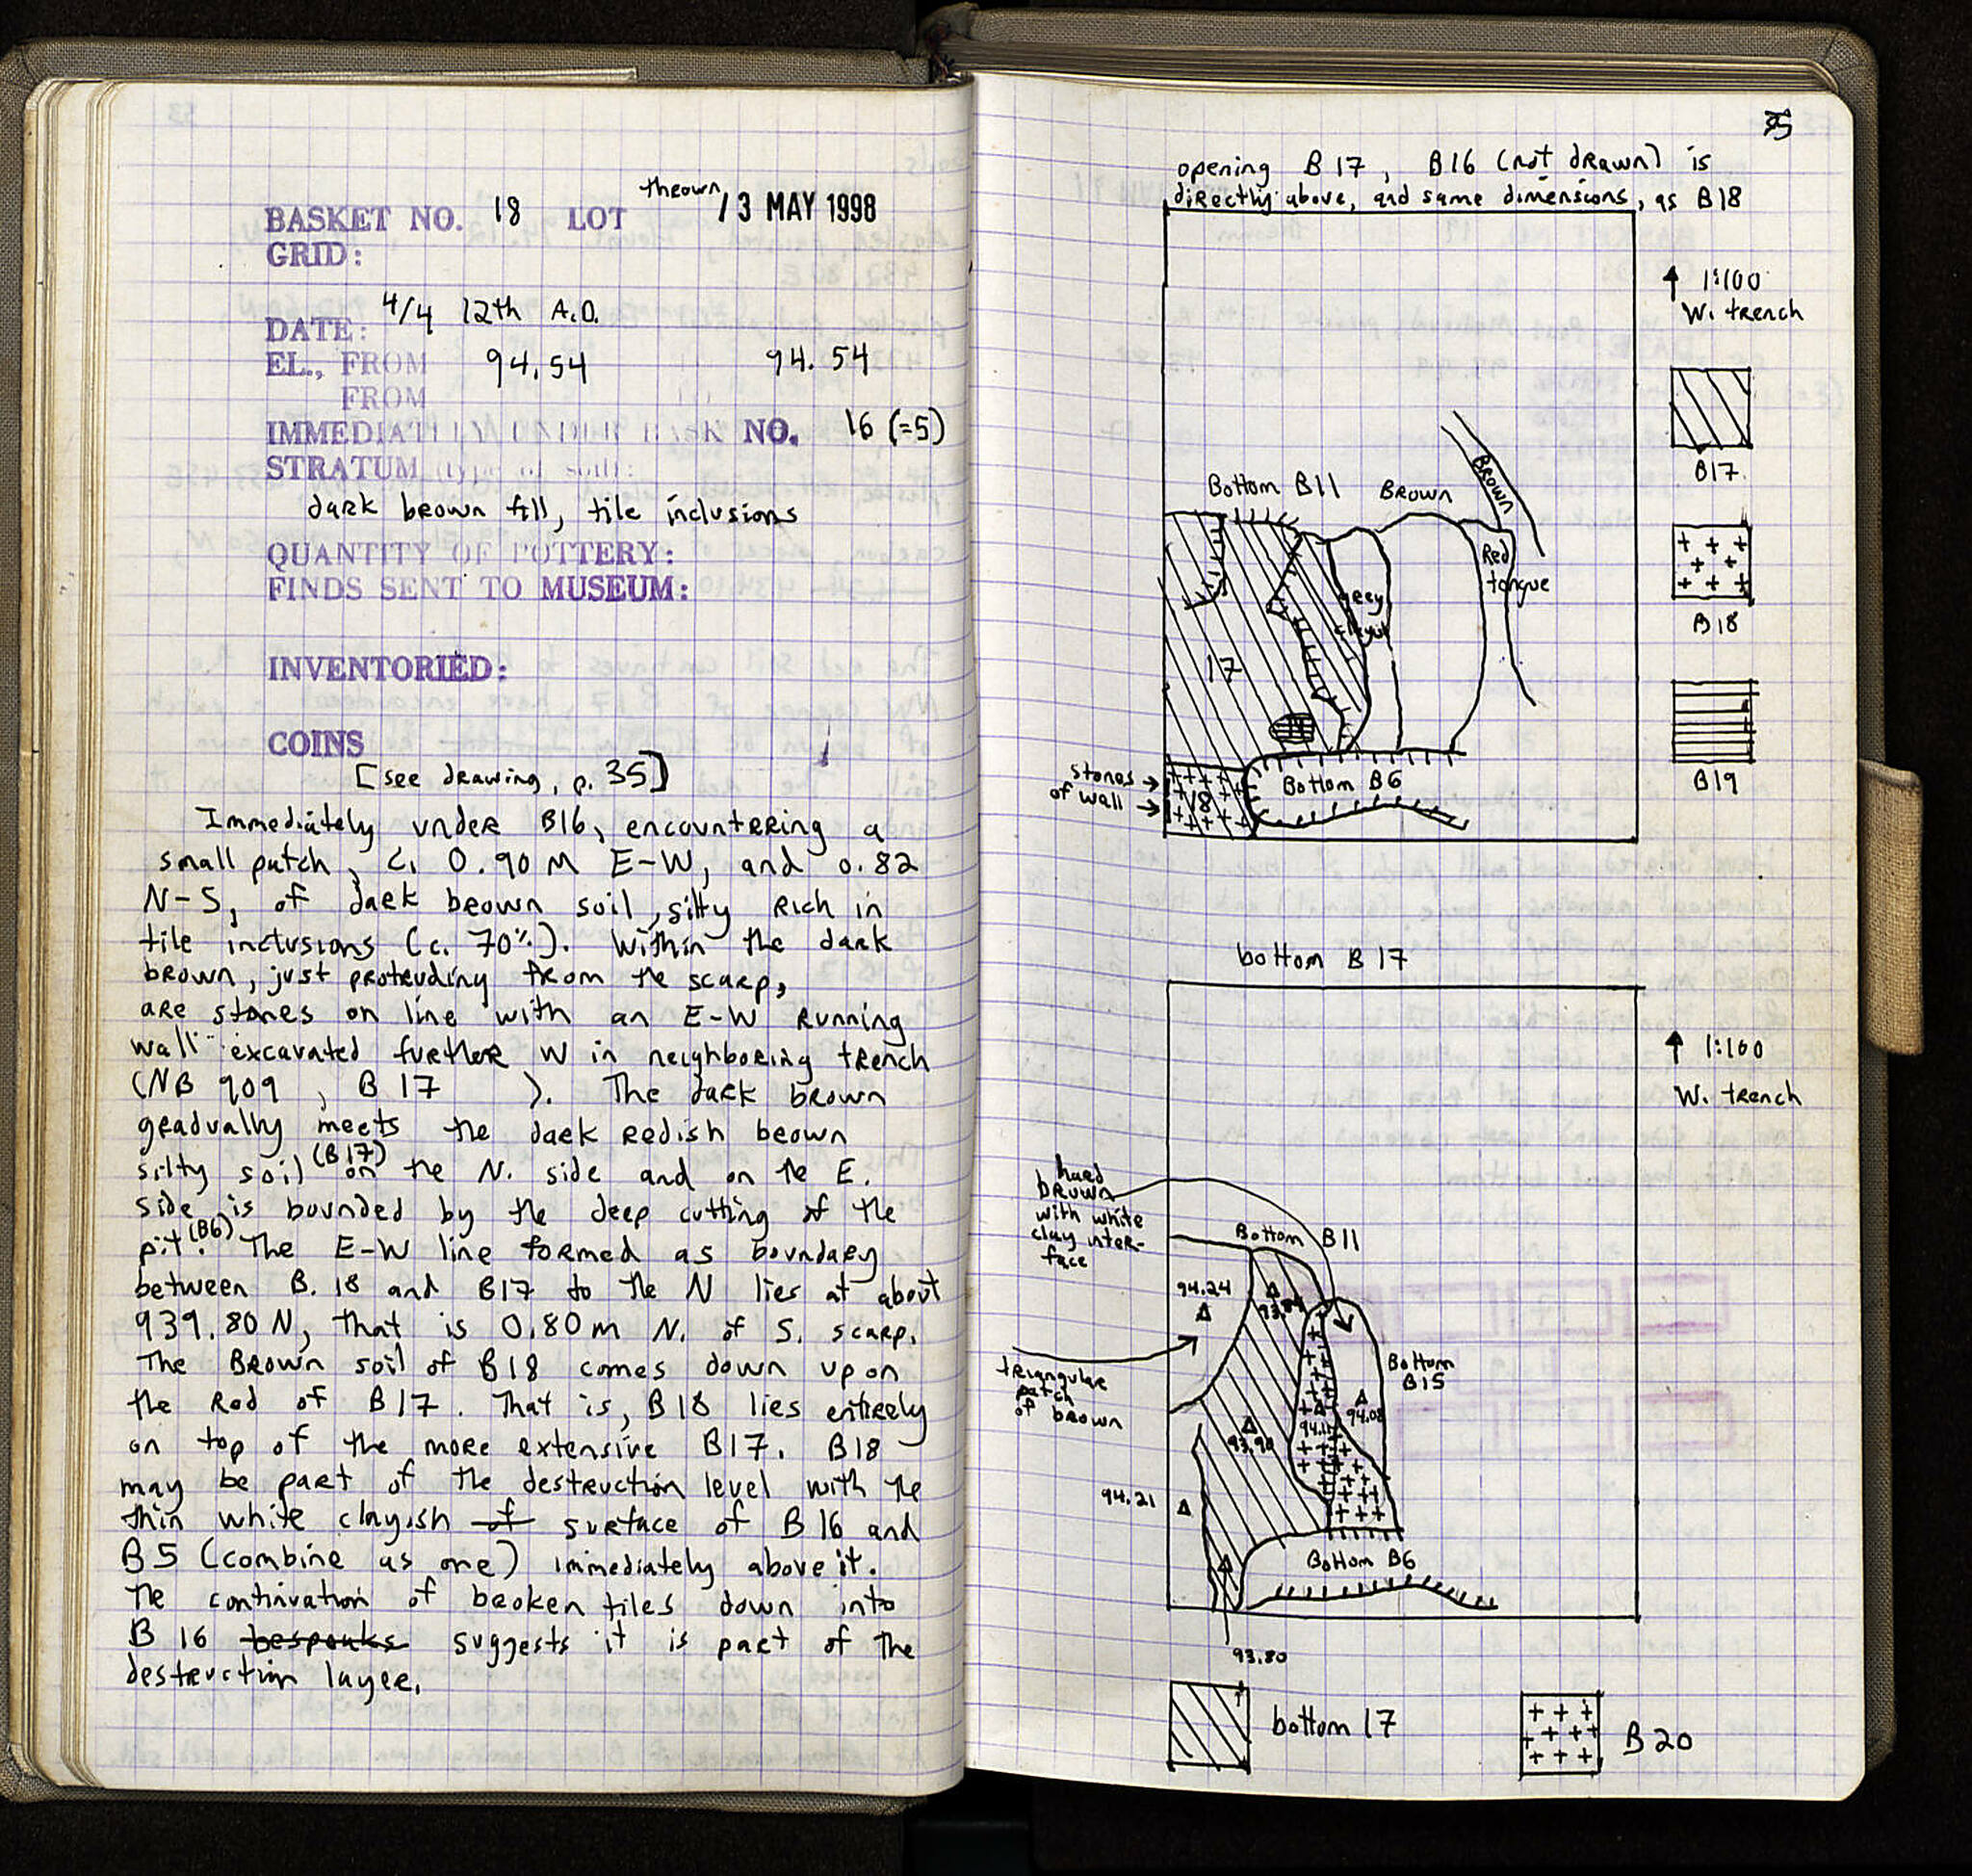 thrown / 3 MAY 1998
BASKET NO. 18 LOT
GRID:
4/4 12th A.D.
DATE:
EL., FROM 94.54 94.54
FROM
IMMEDIATELY UNDER BASK NO. 16 (=5)
STRATUM (type of soil):
dark brown fill, tile inclusions
QUANTITY OF POTTERY:
FINDS SENT TO MUSEUM:
INVENTORIED:
COINS
[see drawing, p. 35]
Immediately under B16, encountering a
small patch, c. 0.90 m E-W, and 0.82
N-S, of dark brown soil, silty rich in
tile inclusions (c. 70%). Within the dark
brown, just protruding from the scarp,
are stones on line with an E-W running
wall excavated further W in neighboring trench
(NB 909, B 17 ). The dark brown
gradually meets the dark redish brown
silty soil (B17) on the N. side and on the E.
side is bounded by the deep cutting of the
pit (B6). The E-W line formed as boundary
between B. 18 and B17 to the N lies at about
939.80 N, that is 0.80 m N. of S. scarp.
The Brown soil of B18 comes down upon
the Red of B17. That is, B18 lies entirely
on top of the more extensive B17. B18
may be part of the destruction level with the
thin white clayish of surface of B16 and
B5 (combine as one) immediately above it.
The continuation of broken tiles down into
B 16 bespeaks suggests it is part of the
destruction layer.
35
opening B17, B16 (not drawn) is
directly above, and same dimensions, as B18
1:100
W. trench
B17
B18
B19
Bottom B11
Brown
Brown
Red
tongue
grey
17
19
stones
of wall
18
Bottom B6
bottom B17
1:100
W. trench
hard
brown
with white
clay inter-
face
Bottom B11
94.24
triangular
patch
of brown
Bottom
B15
94.08
93.90
94.21
Bottom B6
93.80
bottom 17
B20